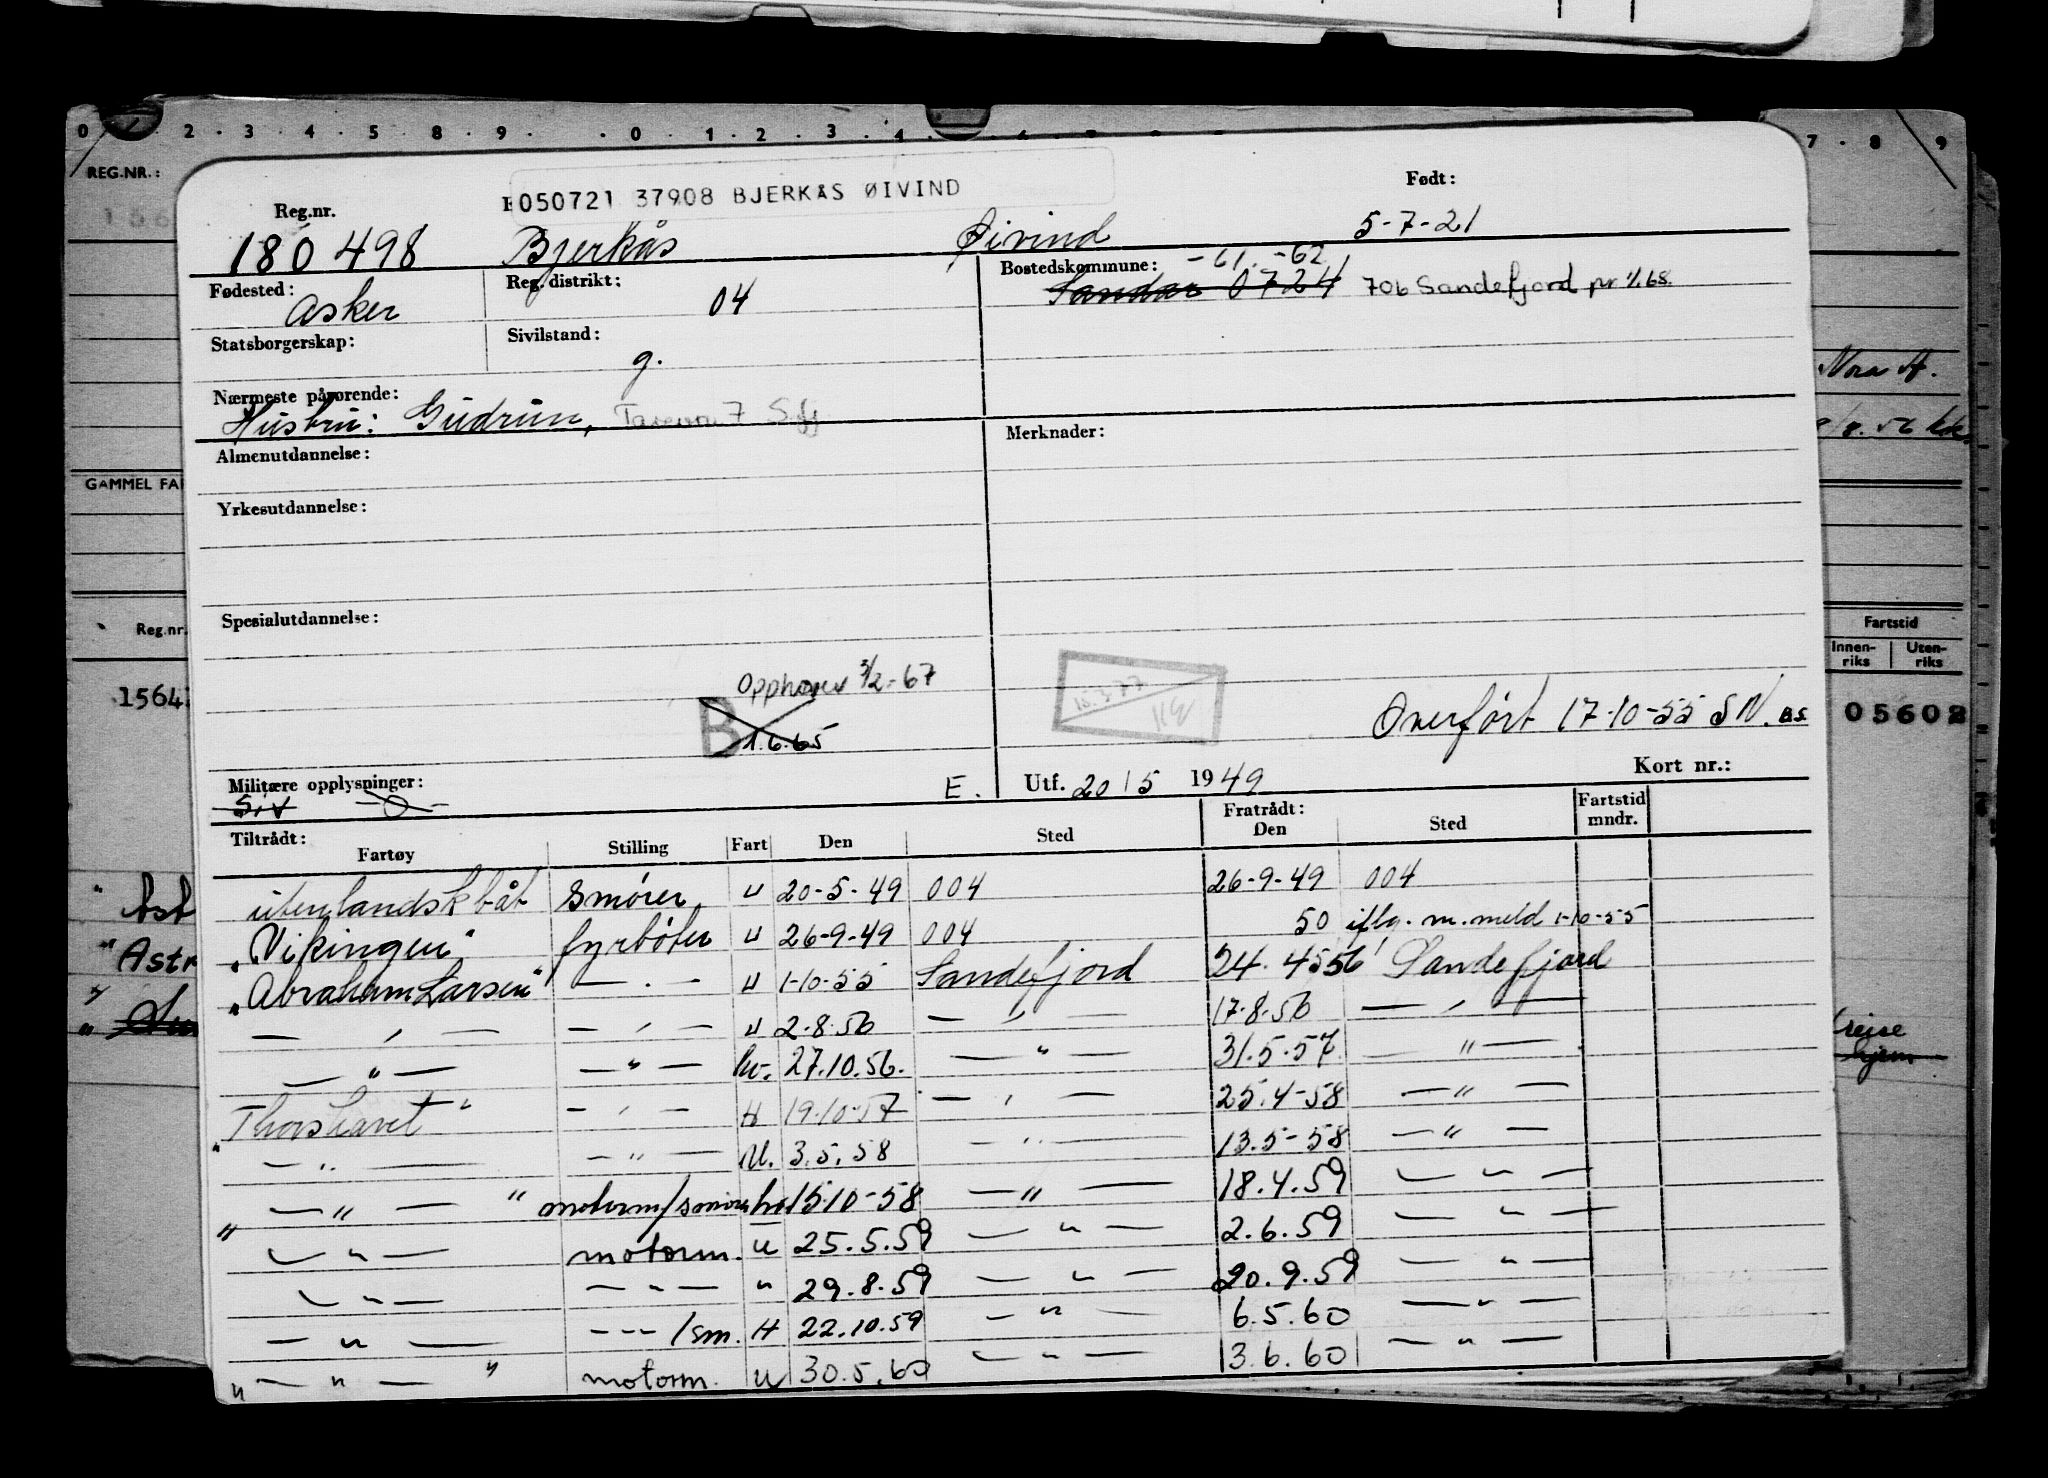 0 2 . 3 . 4 . 5 . 8 . 9 . 0 . 1 . 2 . 3 . 4 . 7 . 8 . 9
REG.NR.:
050721 37908 BJERKÅS ØIVIND
Født:
Reg.nr.
180 498 Bjerkås Øivind 5-7-21
Fødested: Reg. distrikt: Bostedskommune: -61. -62
Asker 04 Sandar 0724 706 Sandefjord pr 1/1.68.
Statsborgerskap: Sivilstand:
g.
Nærmeste pårørende:
Hustru: Gudrun, 7
Nora A.
Merknader:
Almenutdannelse:
8/8. 56
GAMMEL FA
Yrkesutdannelse:
Spesialutdannelse:
Reg.nr.
Fartstid
Innen- riks Uten- riks
Opphøres 3/2-67
B 1.6.65
15.3.77
1564
Overført 17-10-55 SN. BS.
05602
Militære opplysninger: E. Utf. 20/5 1949 Kort nr.:
Siv -0-
Tiltrådt: Fratrådt: Fartstid mndr.
Fartøy Stilling Fart Den Sted Den Sted
utenlandsk båt smører u 20-5-49 004 26-9-49 004
"Vikingen" fyrbøter u 26-9-49 004 50 iflg. m.meld 1-10-55
"Abraham Larsen" — . — u 1-10-55 Sandefjord 24. 4 56 Sandefjord
— ' — — ' — u 2.8.56 — ' — 17.8.56 — ' —
— " — — " — hv. 27.10.56. — " — 31.5.57 — " —
"Thorshavet" — ' — H 19.10.57 — ' — 25.4-58 — " —
— " — — " — U. 3.5.58 — " — 13.5-58 — " —
" — " — " motorm/smører hv 15.10-58 — " — 18.4.59 — " —
— " — motorm. u 25.5.59 — " — 2.6.59 — " —
— " — — " — " 29.8.59 — " — 20.9.59 — " —
— " — - - - /sm. H 22.10.59 — " — 6.5.60 — " —
" — " — " motorm. u 30.5.60 — " — 3.6.60 — " —
" Ast
" Astr
reise
hjem